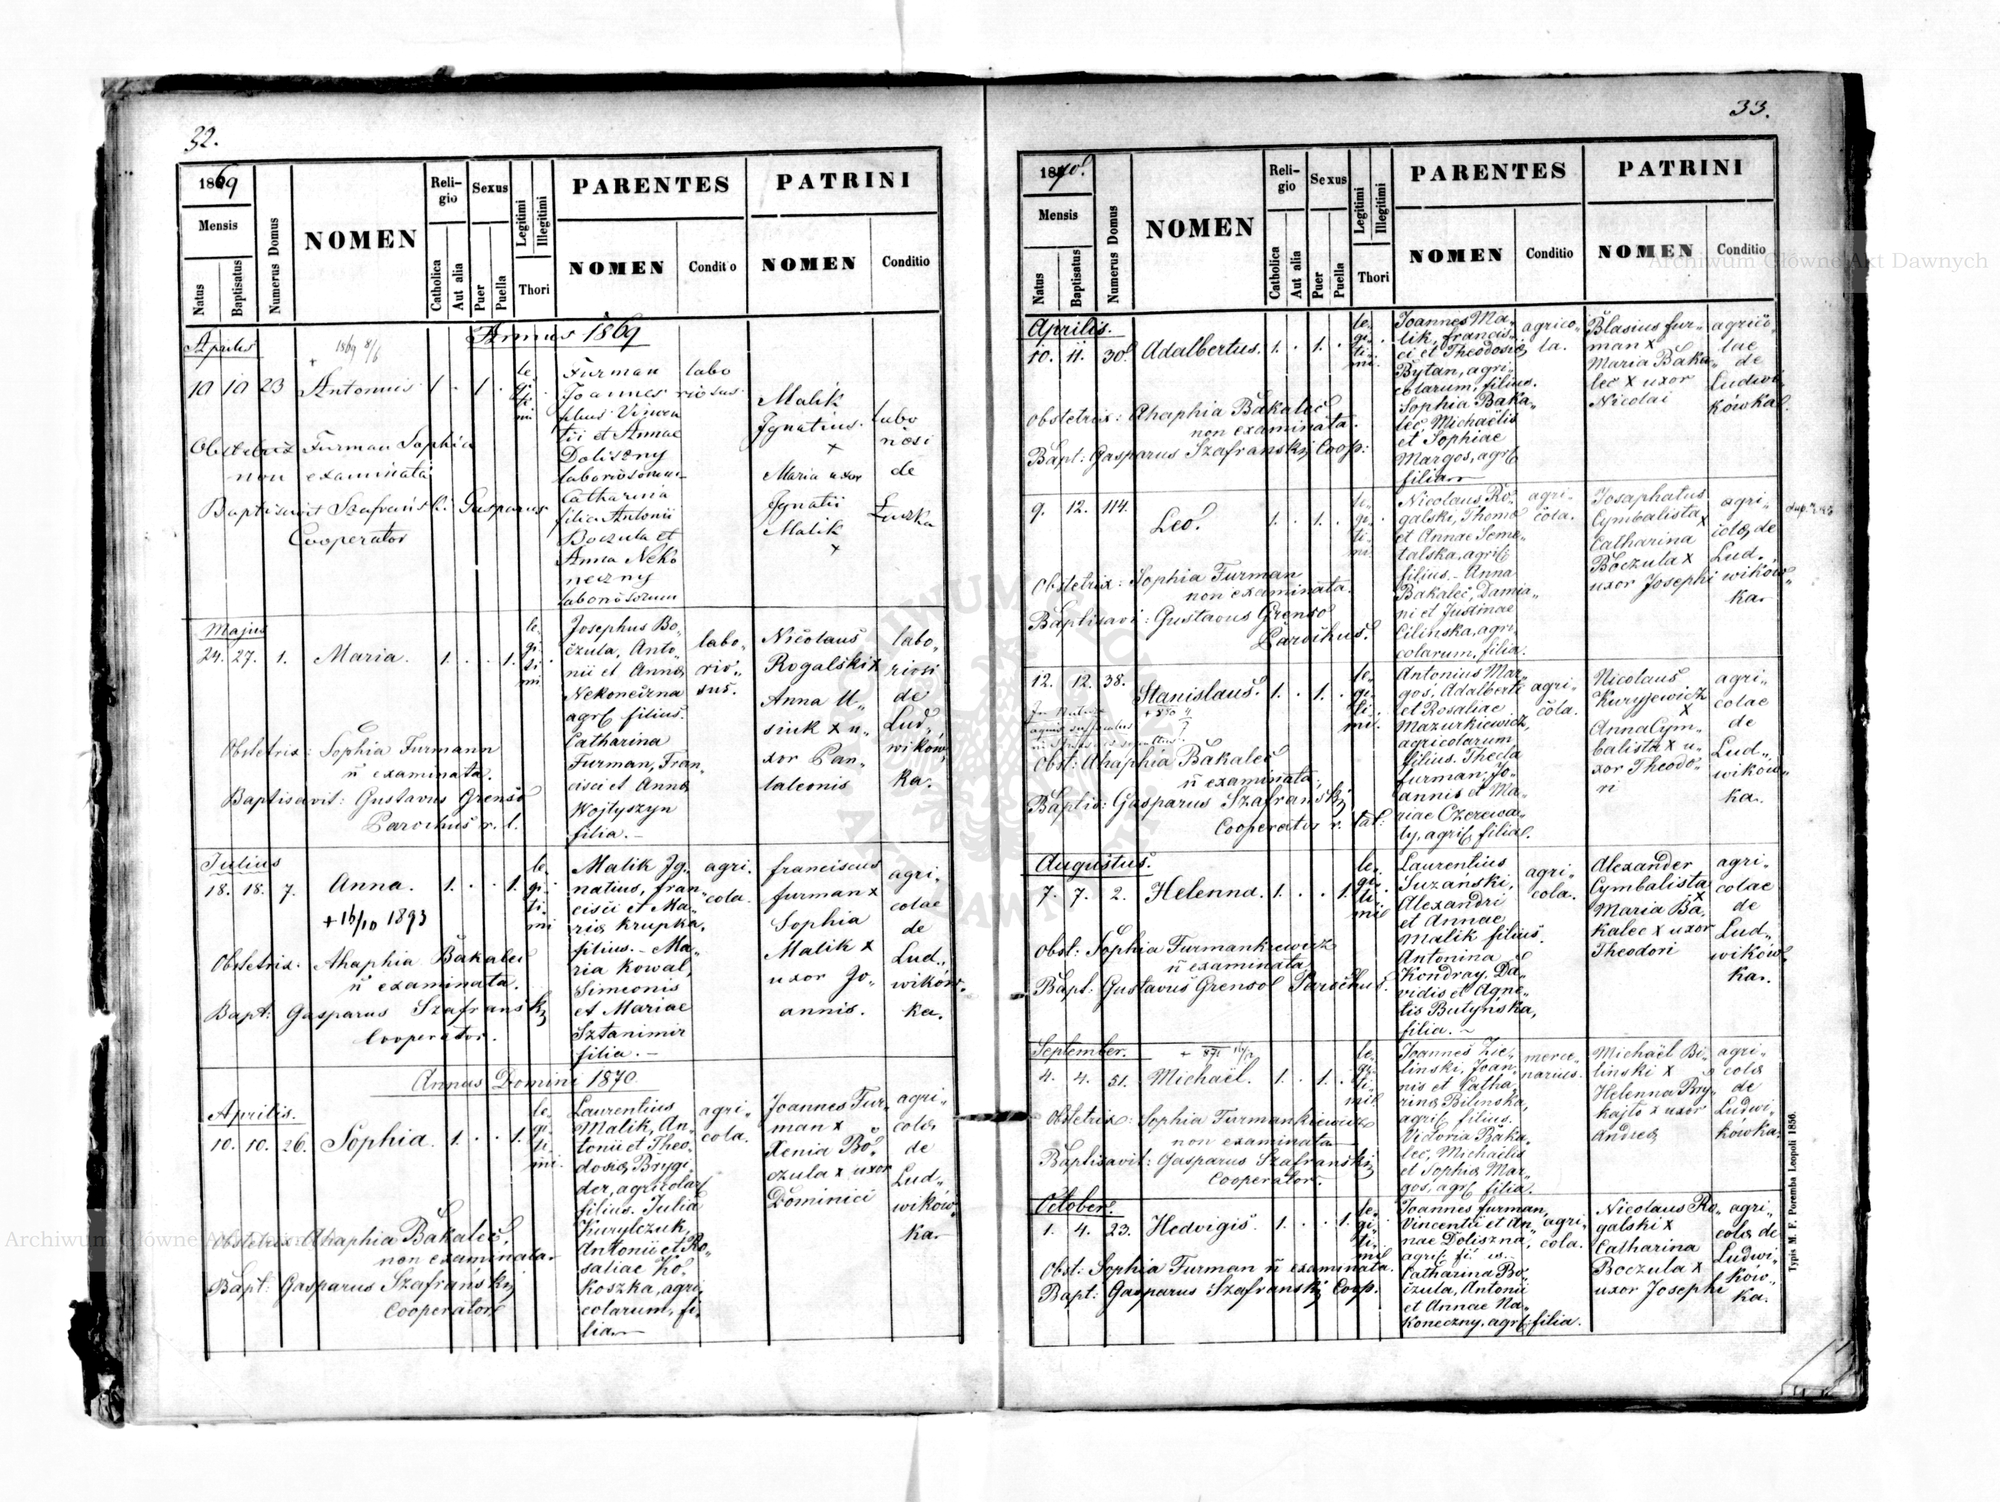 32.
1869
Mensis
Natus
Baptisatus
Numerus Domus
NOMEN
Reli-
gio
Catholica
Aut alia
Sexus
Puer
Puella
Legitimi
Illegitimi
Thori
PARENTES
NOMEN
Conditio
PATRINI
NOMEN
Conditio
Annus 1869
Aprilis
1869 8/6
+
10 10 23 Antonius 1 . 1 .
le
gi
ti
mi
Furman
Joannes
filius Vincen
tii et Annae
Doliszny
laboriosorum
Catharina
filia Antonii
Boczula et
Anna Neko
neczny
laboriosorum
labo
riosus
Malik
Ignatius
+
Maria uxor
Ignatii
Malik
+
Labo
riosi
de
Łuzka
Obstetrix Furman Sophia
non examinata
Baptisavit Szafrański Gasparus
Cooperator
Majus
24. 27. 1. Maria. 1. . . 1.
le.
gi.
ti.
mi
Josephus Bo„
czula, Anto„
nii et Annæ
Nekoneczna
agr. filius.
Catharina
Furman, Fran„
cisci et Annæ
Wojtyszyn
filia. –
labo„
rio„
sus.
Nicolaus
Rogalski x
Anna U„
siuk x u„
xor Pan„
taleonis
labo„
riosi
de
Lud„
wików„
ka.
Obstetrix: Sophia Furmann
ñ examinata.
Baptisavit: Gustavus Grensol
Parochus r. l.
Julius
18. 18. 7. Anna. 1. . . 1.
+ 16/10 1893
le
gi
ti.
mi
Malik Ig„
natius, Fran„
cisci et Ma„
riæ Krupka,
filius. – Ma„
ria Kowal,
Simeonis
et Mariae
Sztanimir
filia. –
agri„
cola.
Franciscus
Furman x
Sophia
Malik x
uxor Jo„
annis.
agri„
colae
de
Lud„
wików„
ka.
Obstetrix: Ahaphia Bakalec
ñ examinata.
Bapt: Gasparus Szafranskij
Cooperator.
Annus Domini 1870.
Aprilis.
10. 10. 26. Sophia. 1. . . 1.
le„
gi„
ti„
mi.
Laurentius
Malik, An„
tonii et Theo„
dosiæ Brygi„
der, agricolar
filius. Julia
Kurylczuk,
Antonii et Ro„
saliae Ko„
koszka, agri
colarum, fi„
lia.
agri„
cola.
Joannes Fur„
man x
Xenia Bo„
czula x uxor
Dominici
agri„
colæ
de
Lud„
wików„
ka.
Obstetrix Ahaphia Bakalec.
non examinata.
Bapt: Gasparus Szafranskij
Cooperator
33.
1870.
Mensis
Natus
Baptisatus
Numerus Domus
NOMEN
Reli-
gio
Catholica
Aut alia
Sexus
Puer
Puella
Legitimi
Illegitimi
Thori
PARENTES
NOMEN
Conditio
PATRINI
NOMEN
Conditio
Aprilis.
10. 11. 30. Adalbertus. 1. . 1. .
le„
gi„
ti„
mi.
Joannes Ma„
lik, Francis„
ci et Theodosiæ
Bytan, agri„
colarum, filius.
Sophia Baka„
lec, Michaëlis
et Sophiae
Margos, agr.
filia.
agrico„
la.
Blasius Fur„
man x
Maria Baka„
lec x uxor
Nicolai
agrico
lae
de
Ludwi„
kówka.
Obstetrix: Ahaphia Bakalec
non examinata.
Bapt: Gasparus Szafranskij Coop:
9. 12. 114. Leo. 1. . 1. .
le„
gi„
ti„
mi.
Nicolaus Ro„
galski, Thomæ
et Annae Seme„
talska, agr.
filius. – Anna
Bakalec, Damia„
ni et Justinae
Cilinska, agri„
colarum, filia.
agri„
cola.
Josaphatus
Cymbalista x
Catharina
Boczula x
uxor Josephi
agri„
colæ de
Lud„
wików„
ka.
Obstetrix: Sophia Furman
non examinata.
Baptisavi: Gustavus Grensol
Parochus.
12. 12. 38. Stanislaus. 1. . 1. .
le„
gi„
ti„
mi.
Antonius Mar„
gos, Adalberti
et Rosaliae
Mazurkiewicz,
agricolarum
filius. Thecla
Furman, Jo„
annis et Ma„
riae Czerewa„
ty, agr. filia.
agri„
cola.
Nicolaus
Kuryjewicz
x
Anna Cym„
balista x u„
xor Theodo„
ri
agri„
colae
de
Lud„
wików„
ka.
Obst: Ahaphia Bakalec
ñ examinata.
Baptis: Gasparus Szafranskij
Cooperator r. lat:
Augustus.
7. 7. 2. Helenna. 1. . . 1.
le„
gi„
ti„
mi
Laurentius
Suzański,
Alexandri
et Annae
Malik filius.
Antonina
Kondray, Da„
vidis et Agne„
tis Butyńska,
filia. –
agri„
cola.
Alexander
Cymbalista
x
Maria Ba„
kalec x uxor
Theodori
agri„
colae
de
Lud„
wików„
ka.
Obst: Sophia Furmankiewicz
ñ examinata
Bapt. Gustavus Grensol Parochus.
September.
4. 4. 51. Michaël. 1. . 1. .
le„
gi„
ti„
mi
Joannes Zie„
linski, Joan„
nis et Catha„
rinæ Bilinska,
agr. filius.
Victoria Baka„
lec, Michaëlis
et Sophiæ Mar„
gos, agr. filia.
merce„
narius.
Michaël Bi„
linski x
Helenna Bry„
kajto x uxor
Andreæ
agri„
colæ
de
Ludwi„
kówka.
Obstetrix: Sophia Furmankiewicz
non examinata
Baptisavit: Gasparus Szafranskij
Cooperator.
October.
1. 4. 23. Hedvigis. 1. . . 1.
le„
gi„
ti„
mi
Joannes Furman,
Vincentii et An„
nae Doliszna,
agr.
Catharina Bo„
czula, Antonii
et Annae Na„
koneczny, agr. filia.
agri„
cola.
Nicolaus Ro„
galski x
Catharina
Boczula x
uxor Josephi
agri„
colæ de
Ludwi„
ków„
ka.
Obst: Sophia Furman ñ examinata.
Bapt: Gasparus Szafranskij Coop.
Typis M. F. Poremba Leopoli 1856.
Archiwum Główne Akt Dawnych
Archiwum Główne Akt Dawnych